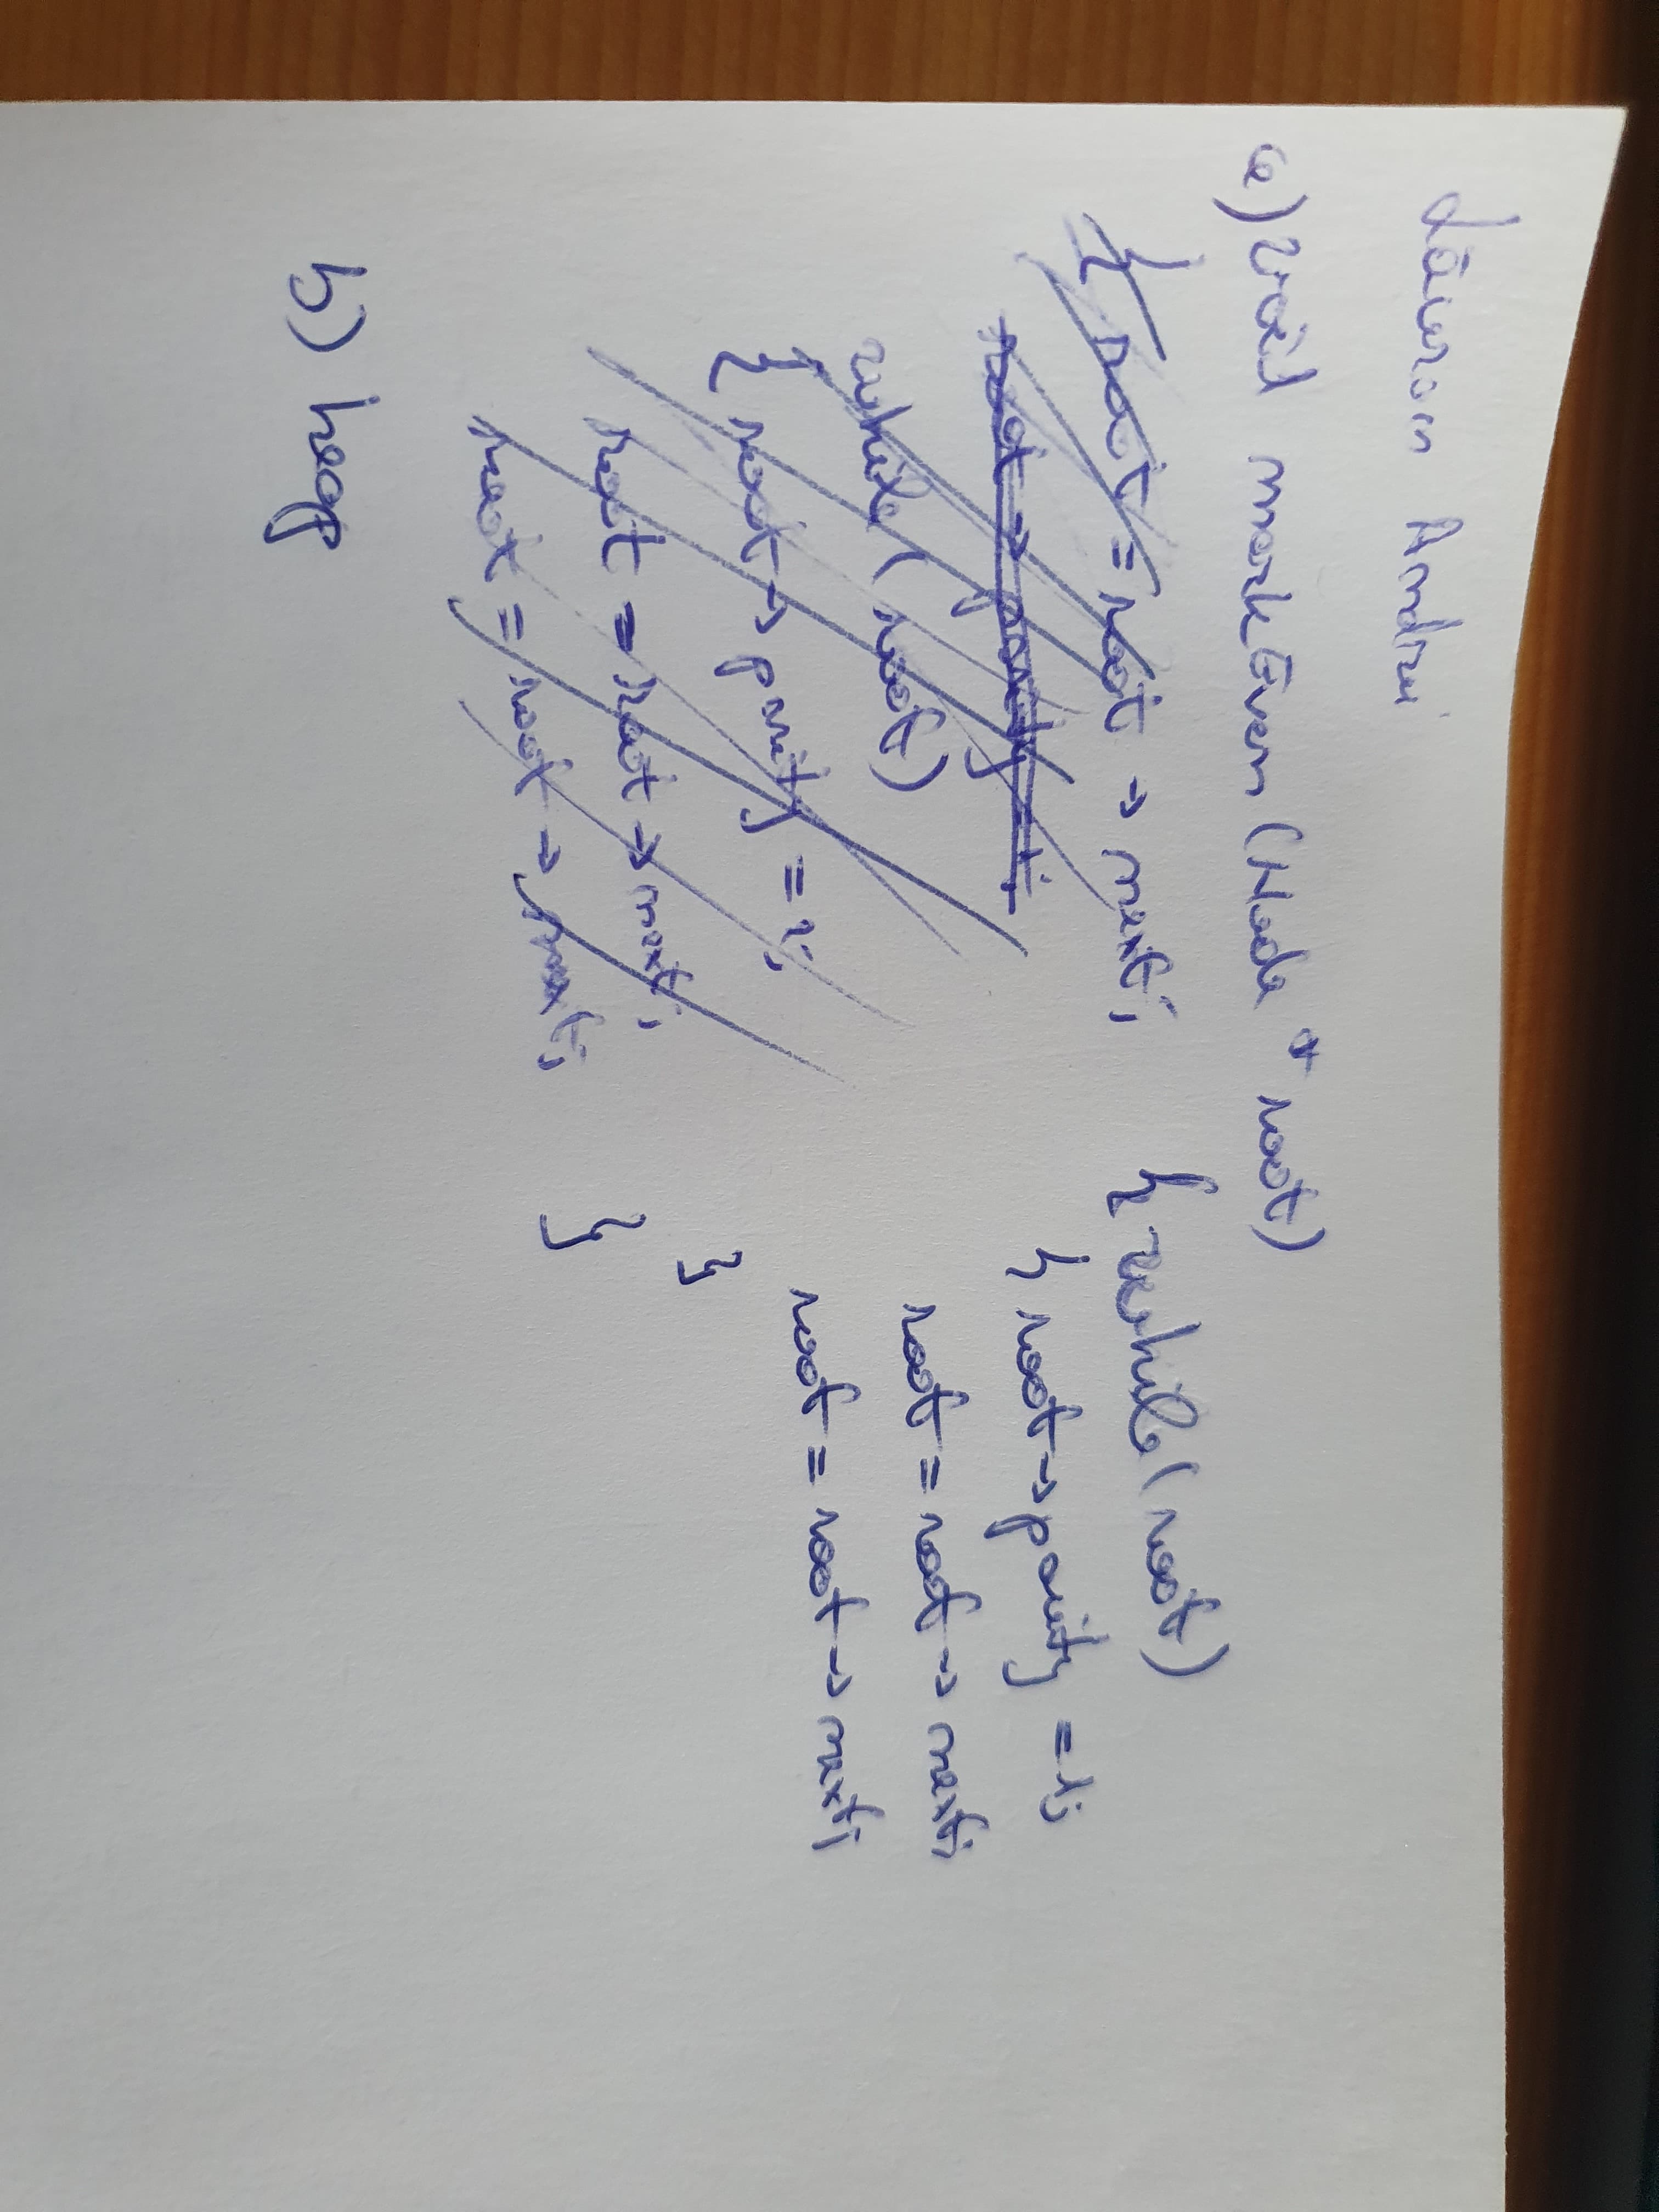 Lăuran Andrei
a) void markEven (Node * root)
{ root = root -> next;
root -> parity = 1;
while (root)
{ root -> parity = 1;
root = root -> next;
root = root -> next;
{ while (root)
{ root -> parity = 1;
root = root -> next;
root = root -> next;
}
}
b) heap